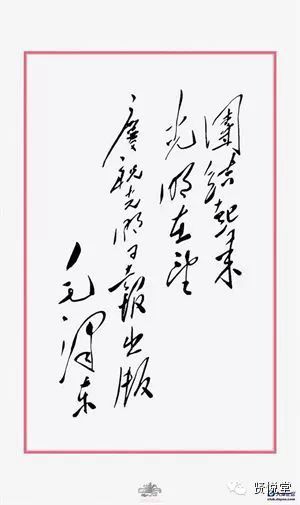 團結起来
光明在望
慶祝光明日報出版
毛澤东
贤悦堂